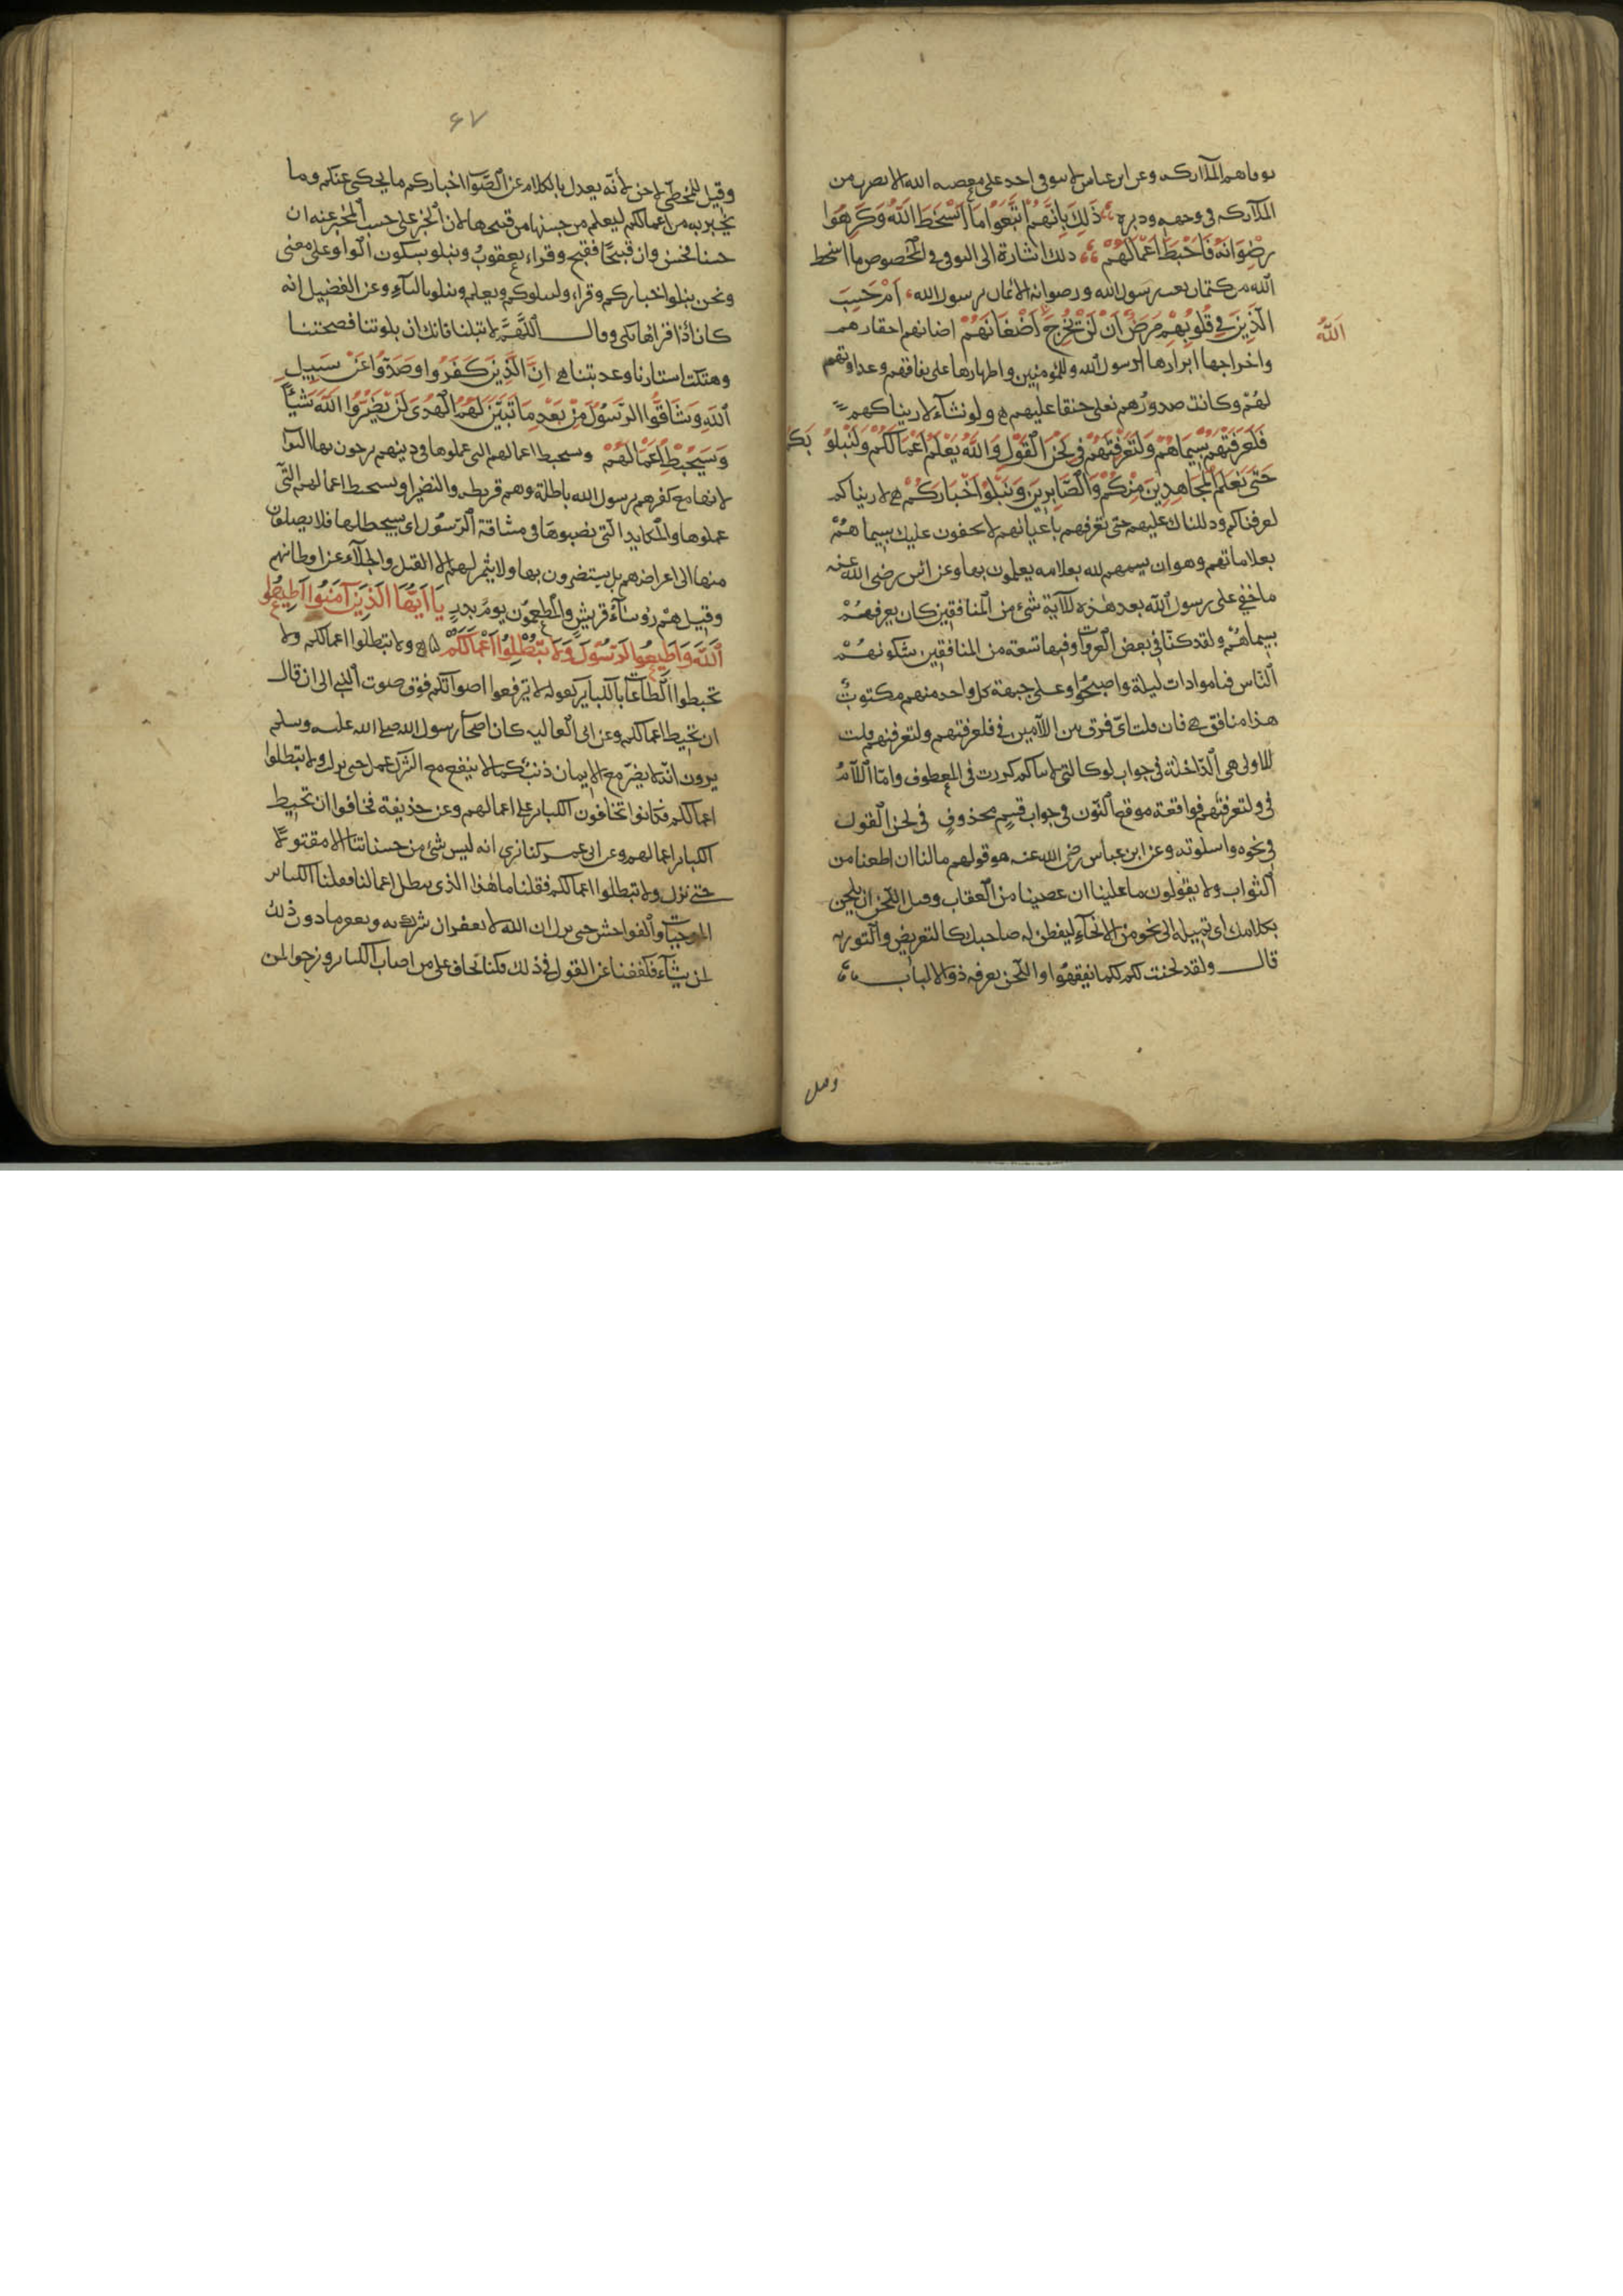 توفاهم الملائكه وعن ابن عباس لا يتوفى احد على معصيه الله الا بضرب من
الملائكه فى وجهه ودبره ذَلِكَ بِاَنَّهُمُ اتَّبَعُوا مَا اَسْخَطَ اللّٰهَ وَكَرِهُوا
رِضْوَانَهُ فَاَحْبَطَ اَعْمَالَهُمْ ذلك اشارة الى التوفى فى الخصوص ما اسخط
الله من كتمان نعت رسول الله ورضوانه الايمان برسول الله اَمْ حَسِبَ
الَّذِينَ فِي قُلُوبِهِمْ مَرَضٌ اَنْ لَنْ يُخْرِجَ اَضْغَانَهُمْ اضغانهم احقادهم
اَللّٰهُ
واخراجها ابرازها لرسول الله وللمؤمنين واظهارها على نفاقهم وعداوتهم
لهُمْ وكانت صدورهم تغلى حنقا عليهم ولو نشآء لاريناكهم
فَلَعَرَفْتَهُمْ بِسِيمَاهُمْ وَلَتَعْرِفَنَّهُمْ فِي لَحْنِ الْقَوْلِ وَاللّٰهُ يَعْلَمُ اَعْمَالَكُمْ وَلَنَبْلُوَنَكُمْ
حَتَّى نَعْلَمَ الْمُجَاهِدِينَ مِنْكُمْ وَالصَّابِرِينَ وَنَبْلُوَ اَخْبَارَكُمْ لاريناكم
لعرفناكم ودللناك عليهم حتى تعرفهم باعيانهم لا يخفون عليك بسيماهُمْ
بعلاماتهم وهو ان يسمهم الله بعلامه يعلمون بها وعن انس رضى الله عنه
ما خفي على رسول الله بعد هذه الآية شئ من المنافقين كان يعرفهُمْ
بسيماهُمْ ولقد كنّا في بعض الغزوات وفيها تسعة من المنافقين يشكوهُمْ
النّاس فناموا ذات ليلة واصبحُوا وعلى جبهة كل واحد منهم مكتوبٌ
هذا منافق فان قلت اىّ فرق بين اللآمين فى فلعرفتهم ولتعرفنهم قلت
الاولى هى الدّاخلة فى جواب لو كالتى لاريناكم كررت فى المعطوف وامّا اللآمُ
فى ولتعرفنّهم فواقعة موقع النّون فى جواب قسمٍ محذوفٍ فى لحن القول
فى نحوه واسلوته وعن ابن عباس رضى الله عنه هو قولهم مالنا ان اطعنا من
الثواب ولا يقولون ما علينا ان عصينا من العقاب وقيل اللّحن ان يلحن
بكلامك اى تميله الى نحو من الانحآءِ ليفطن له صاحبك كالتعريض والتوريه
قال ولقد لحنت لكم كيما تفقهُوا واللّحن يعرفه ذوو الالباب
وقيل
٦٧
وقيل للمخطّى لاحن لانّه يعدل بالكلام عن الصّواب اخباركم ما يحكى عنكم وما
يخبر به من اعمالكم ليعلم من حسنها من قبيحها لان الخبر على حسب المخبر عنه ان
حسنا فحسن وان قبيحًا فقبيح وقراء يعقوبُ ونبلو بسكون الواو على معنى
ونحن نبلو اخباركم وقرا وليبلوكم ويعلم ويبلو باليآءِ وعن الفضيل انه
كان اذا قراها بكى وقال اللّهُمَّ لا تبلنا فانك ان بلوتنا فضحتنا
وهتكت استارنا وعذبتنا اِنَّ الَّذِينَ كَفَرُوا وَصَدُّوا عَنْ سَبِيلِ
اللّٰهِ وَشَاقُّوا الرَّسُولَ مِنْ بَعْدِ مَا تَبَيَّنَ لَهُمُ الْهُدَى لَنْ يَضُرُّوا اللّٰهَ شَيْأً
وَسَيُحْبِطُ اَعْمَالَهُمْ وسيحبط اعمالهم التى عملوها فى دينهم يرجون بها الثواب
لانها مع كفرهم برسول الله باطلة وهم قريظه والنضير او سيحبط اعمالهم التى
عملوها والمكايد الّتى نصبوها فى مشاقة الرّسول اى سيبطلها فلا يصلون
منها الى اعراضهم بل يستضرون بها ولا يثمر لهم الا القتل والجلآء عن اوطانهم
وقيل هُمْ رؤسآء قريشٍ والمطعمون يوم بدرٍ يَا اَيُّهَا الَّذِينَ آمَنُوا اَطِيعُوا
اللّٰهَ وَاَطِيعُوا الرَّسُولَ وَلَا تُبْطِلُوا اَعْمَالَكُمْ ولا تبطلوا اعمالكم ولا
تحبطوا الطاعات بالكبآير كقوله لا ترفعوا اصواتكم فوق صوت النّبي الى ان قال
ان تحبط اعمالكم وعن ابى العاليه كان اصحاب رسول الله صلى الله عليه وسلم
يرون انّه لا يضرّ مع الايمان ذنبٌ كما لا ينفع مع الشرك عمل حتى نزلت ولا تبطلوا
اعمالكم فكانوا يخافون الكباير على اعمالهم وعن حذيفة فخافوا ان تحبط
الكباير اعمالهم وعن ابن عمر كنا نرى انه ليس شئ من حسناتنا الا مقبولًا
حتى نزل ولا تبطلوا اعمالكم فقلنا ما هٰذا الذى يبطل اعمالنا فقلنا الكباير
الموجبات والفواحش حتى نزل ان الله لا يغفر ان يشرك به ويغفر ما دون ذلك
لمن يشآء فكففنا عن القول فى ذلك فكنا نخاف على من اصاب الكباير ونرجو لمن